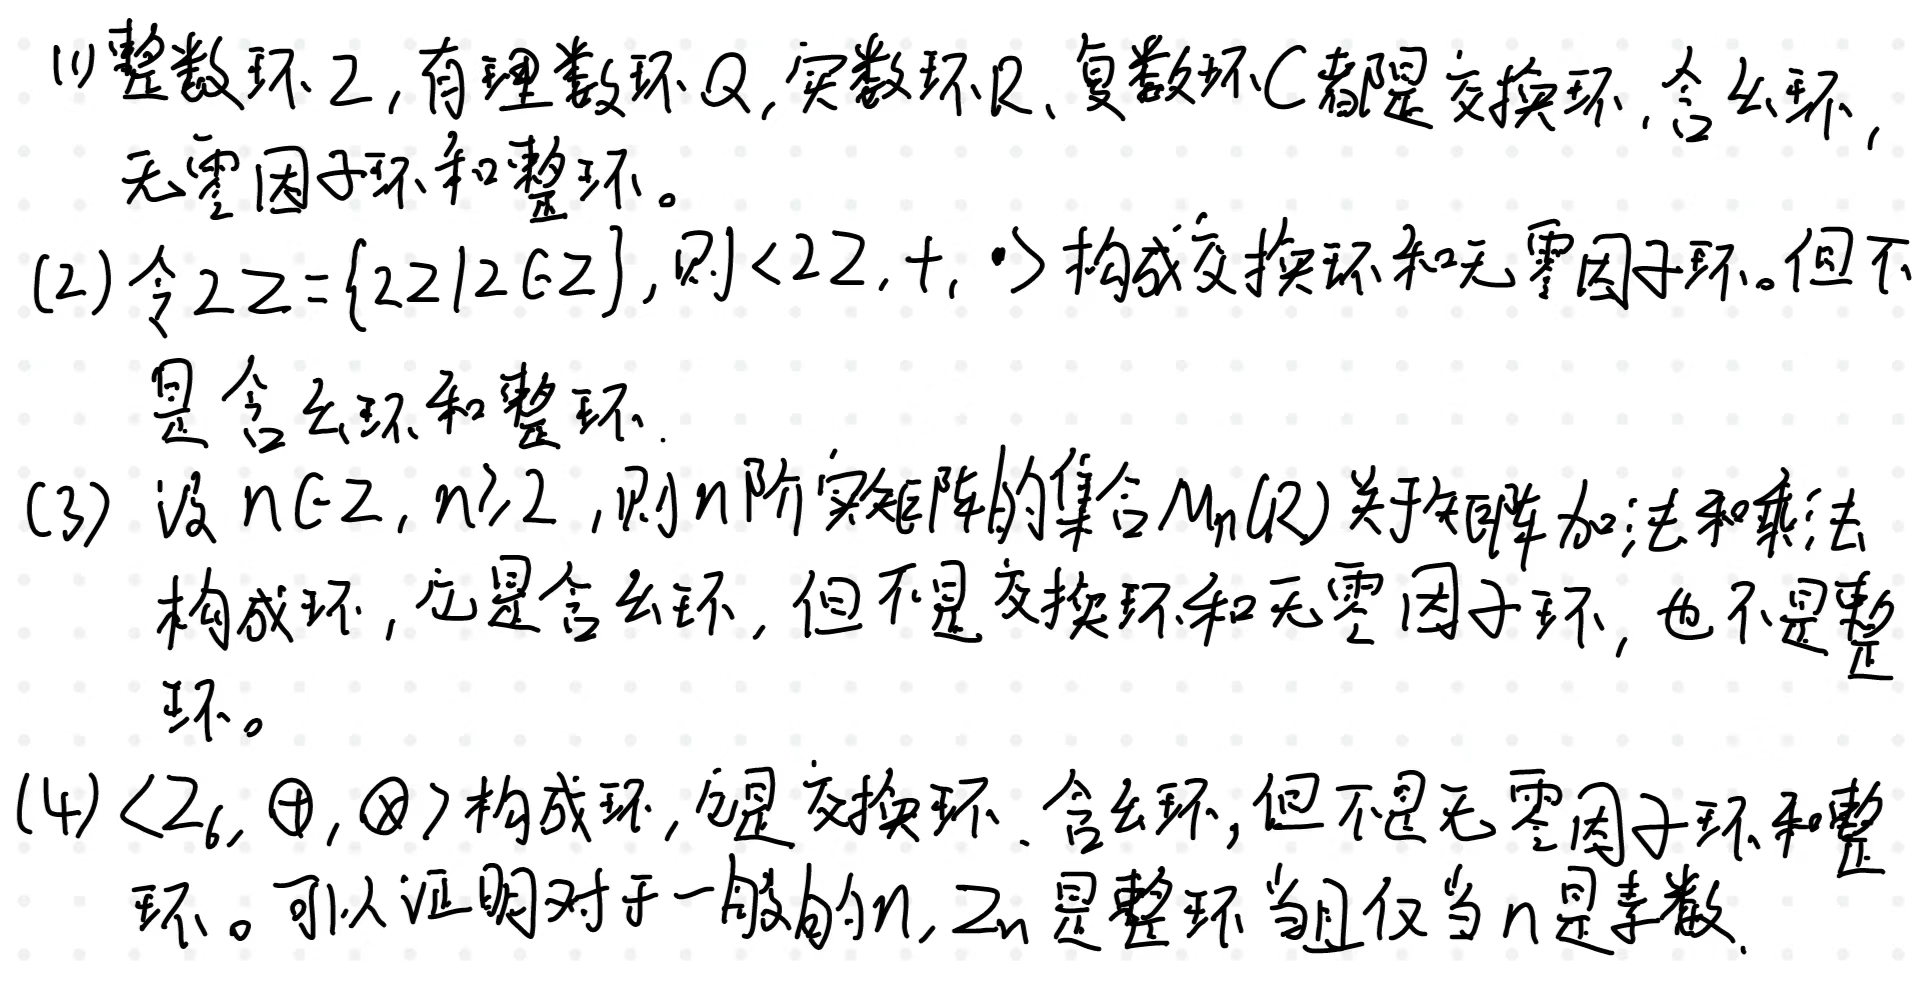 (1)整数环Z,有理数环Q,实数环R、复数环C都是交换环,含幺环,
无零因子环和整环。
(2)令2Z={2z|z∈Z},则<2Z,+,·>构成交换环和无零因子环。但不
是含幺环和整环.
(3) 设n∈Z,n≥2,则n阶实矩阵的集合Mn(R)关于矩阵加法和乘法
构成环,它是含幺环,但不是交换环和无零因子环,也不是整
环。
(4)<Z6,⊕,⊗>构成环,它是交换环、含幺环,但不是无零因子环和整
环。可以证明对于一般的n,Zn是整环当且仅当n是素数.